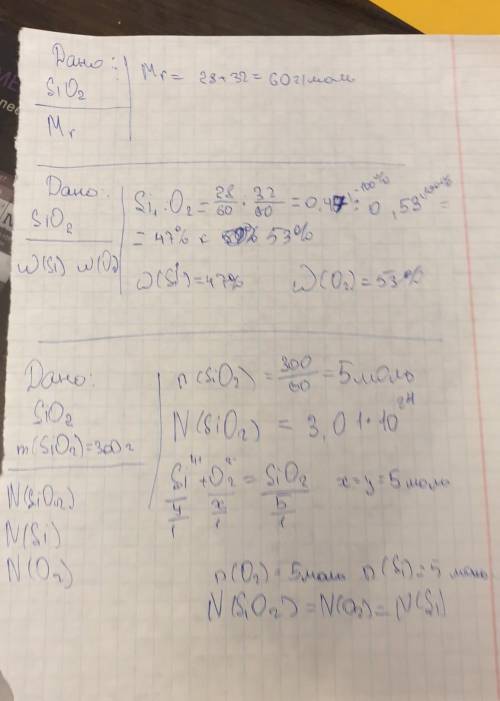 Дано:
SiO₂
Mr
Mr = 28+32 = 60 г/моль
Дано:
SiO₂
ω(Si) ω(O₂)
Si : O₂ = 28/60 : 32/60 = 0,47 · 100% : 0,53 · 100% =
= 47% к 53%
ω(Si) = 47% ω(O₂) = 53%
Дано:
SiO₂
m(SiO₂) = 300 г
N(SiO₂)
N(Si)
N(O₂)
n(SiO₂) = 300/60 = 5 моль
N(SiO₂) = 3,01 · 10²⁴
Si + O₂ = SiO₂ x = y = 5 моль
y/1 x/1 5/1
n(O₂) = 5 моль n(Si) = 5 моль
N(SiO₂) = N(O₂) = N(Si)